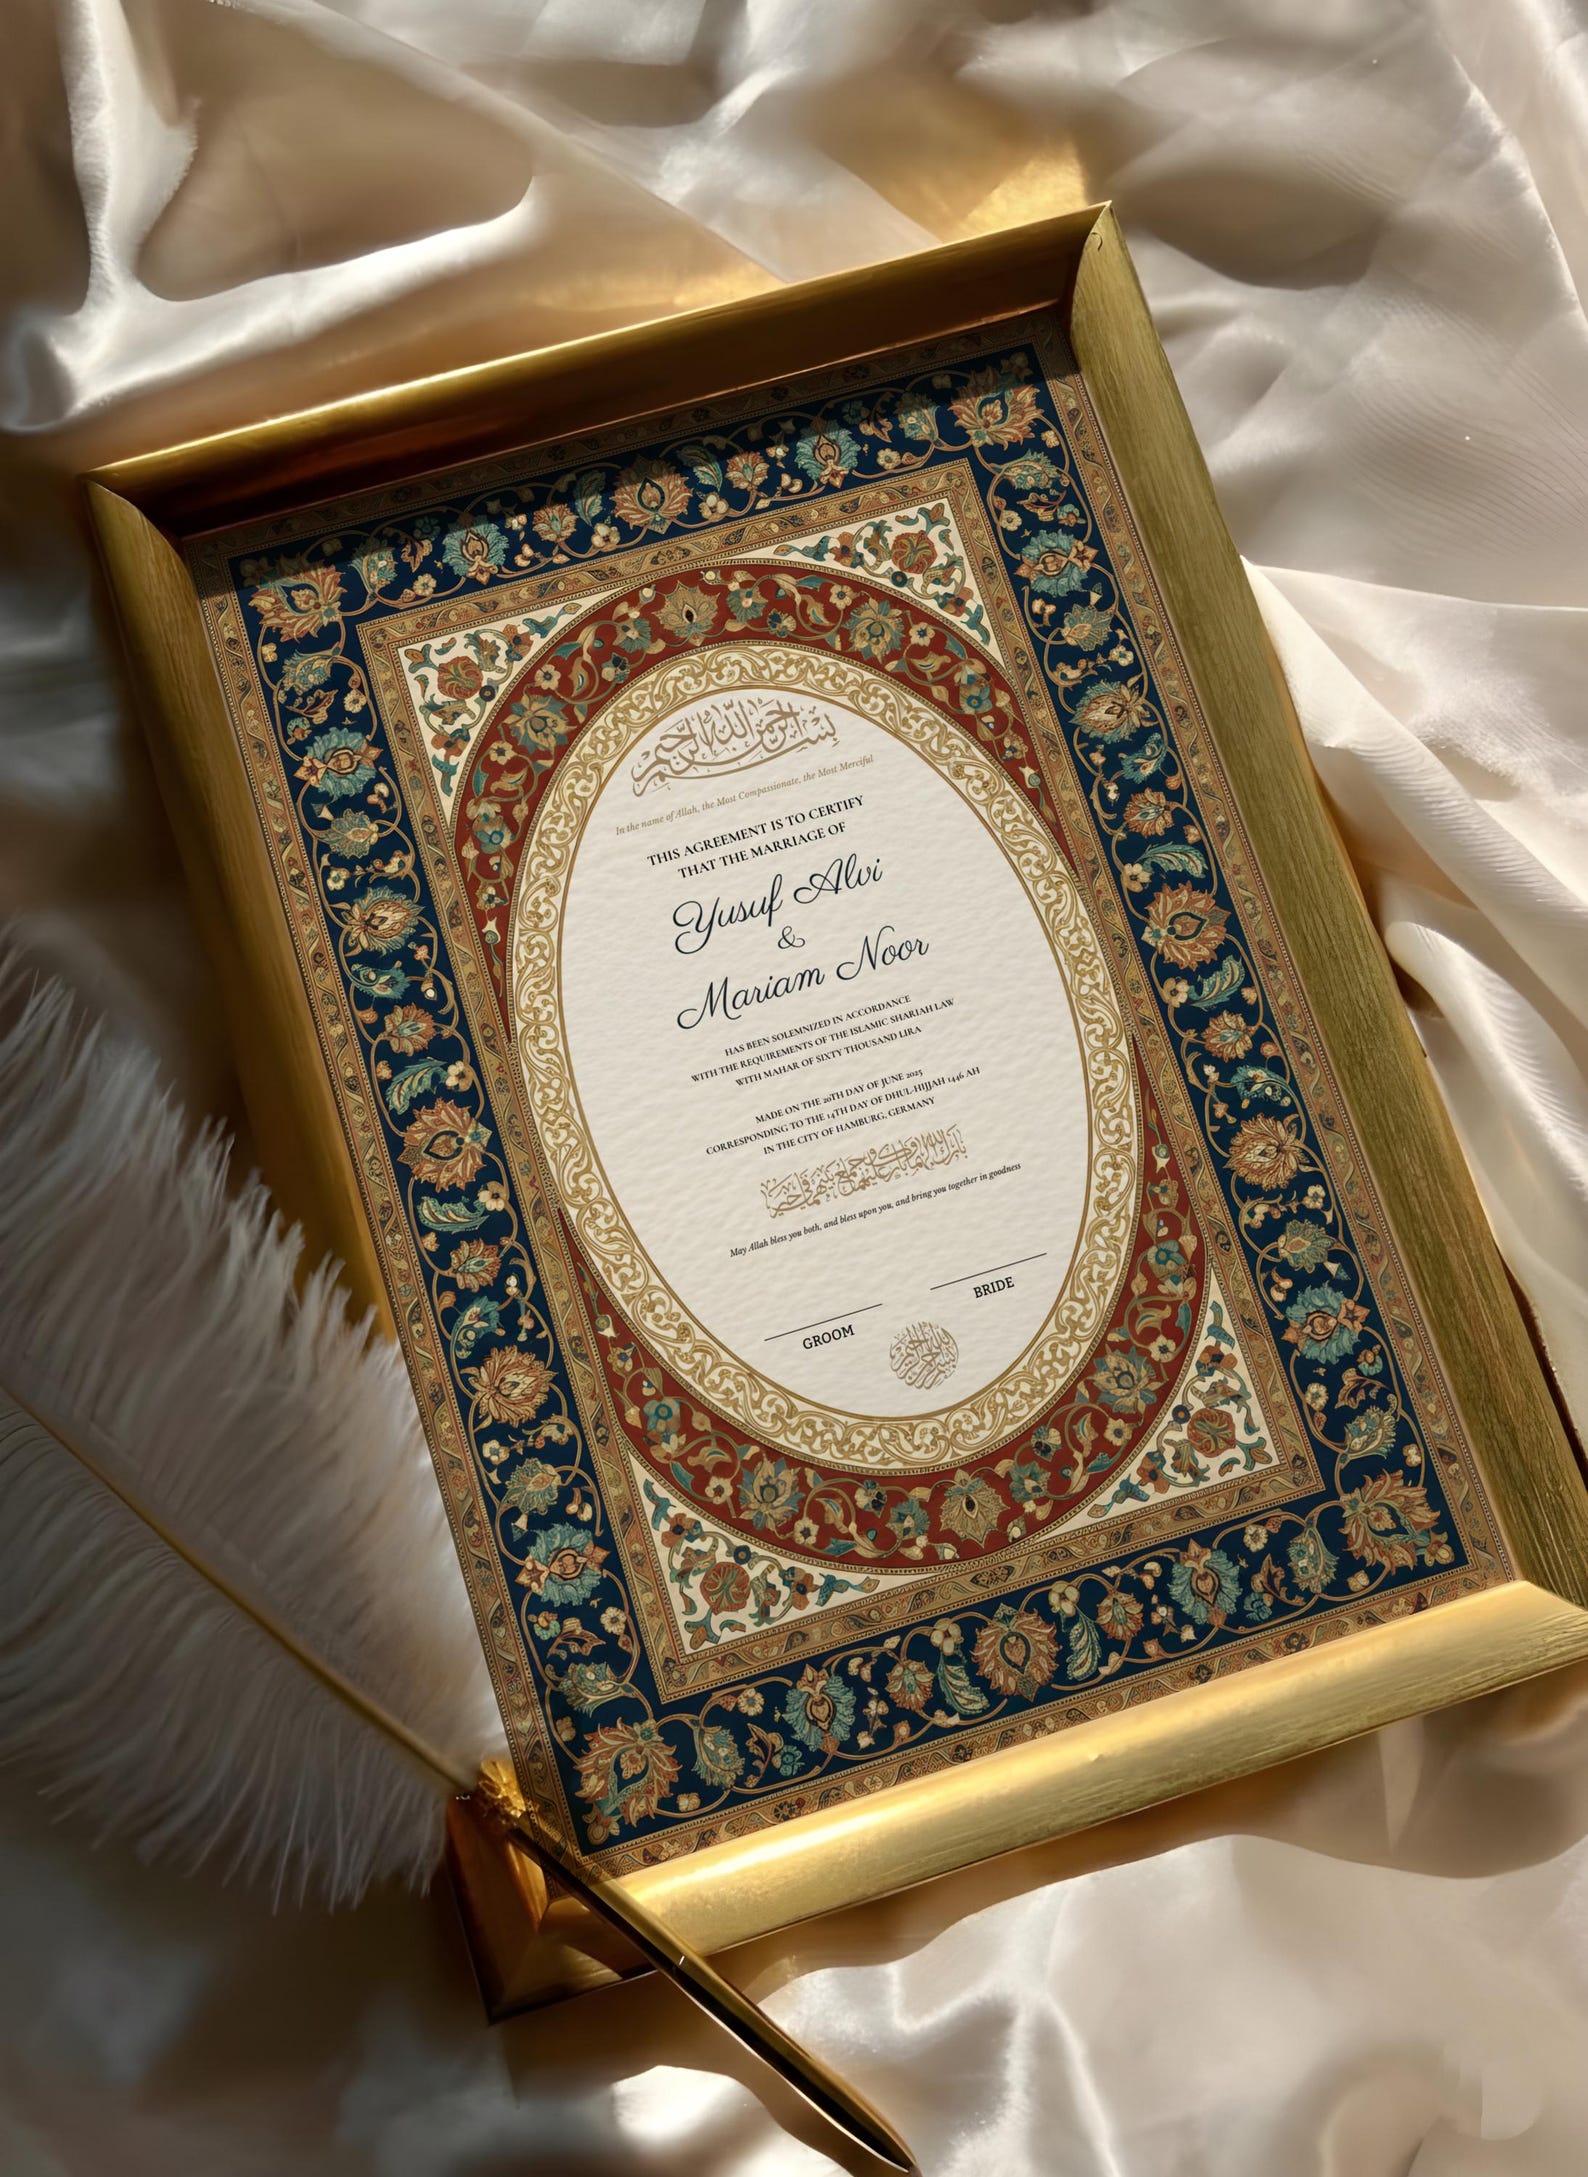 بسم الله الرحمن الرحيم
In the name of Allah, the Most Compassionate, the Most Merciful
THIS AGREEMENT IS TO CERTIFY
THAT THE MARRIAGE OF
Yusuf Alvi
&
Mariam Noor
HAS BEEN SOLEMNIZED IN ACCORDANCE
WITH THE REQUIREMENTS OF THE ISLAMIC SHARIAH LAW
WITH MAHAR OF SIXTY THOUSAND LIRA
MADE ON THE 20TH DAY OF JUNE 2025
CORRESPONDING TO THE 14TH DAY OF DHUL-HIJJAH 1446 AH
IN THE CITY OF HAMBURG, GERMANY
بارك الله لكما وبارك عليكما وجمع بينكما في خير
May Allah bless you both, and bless upon you, and bring you together in goodness
GROOM
BRIDE
بسم الله الرحمن الرحيم